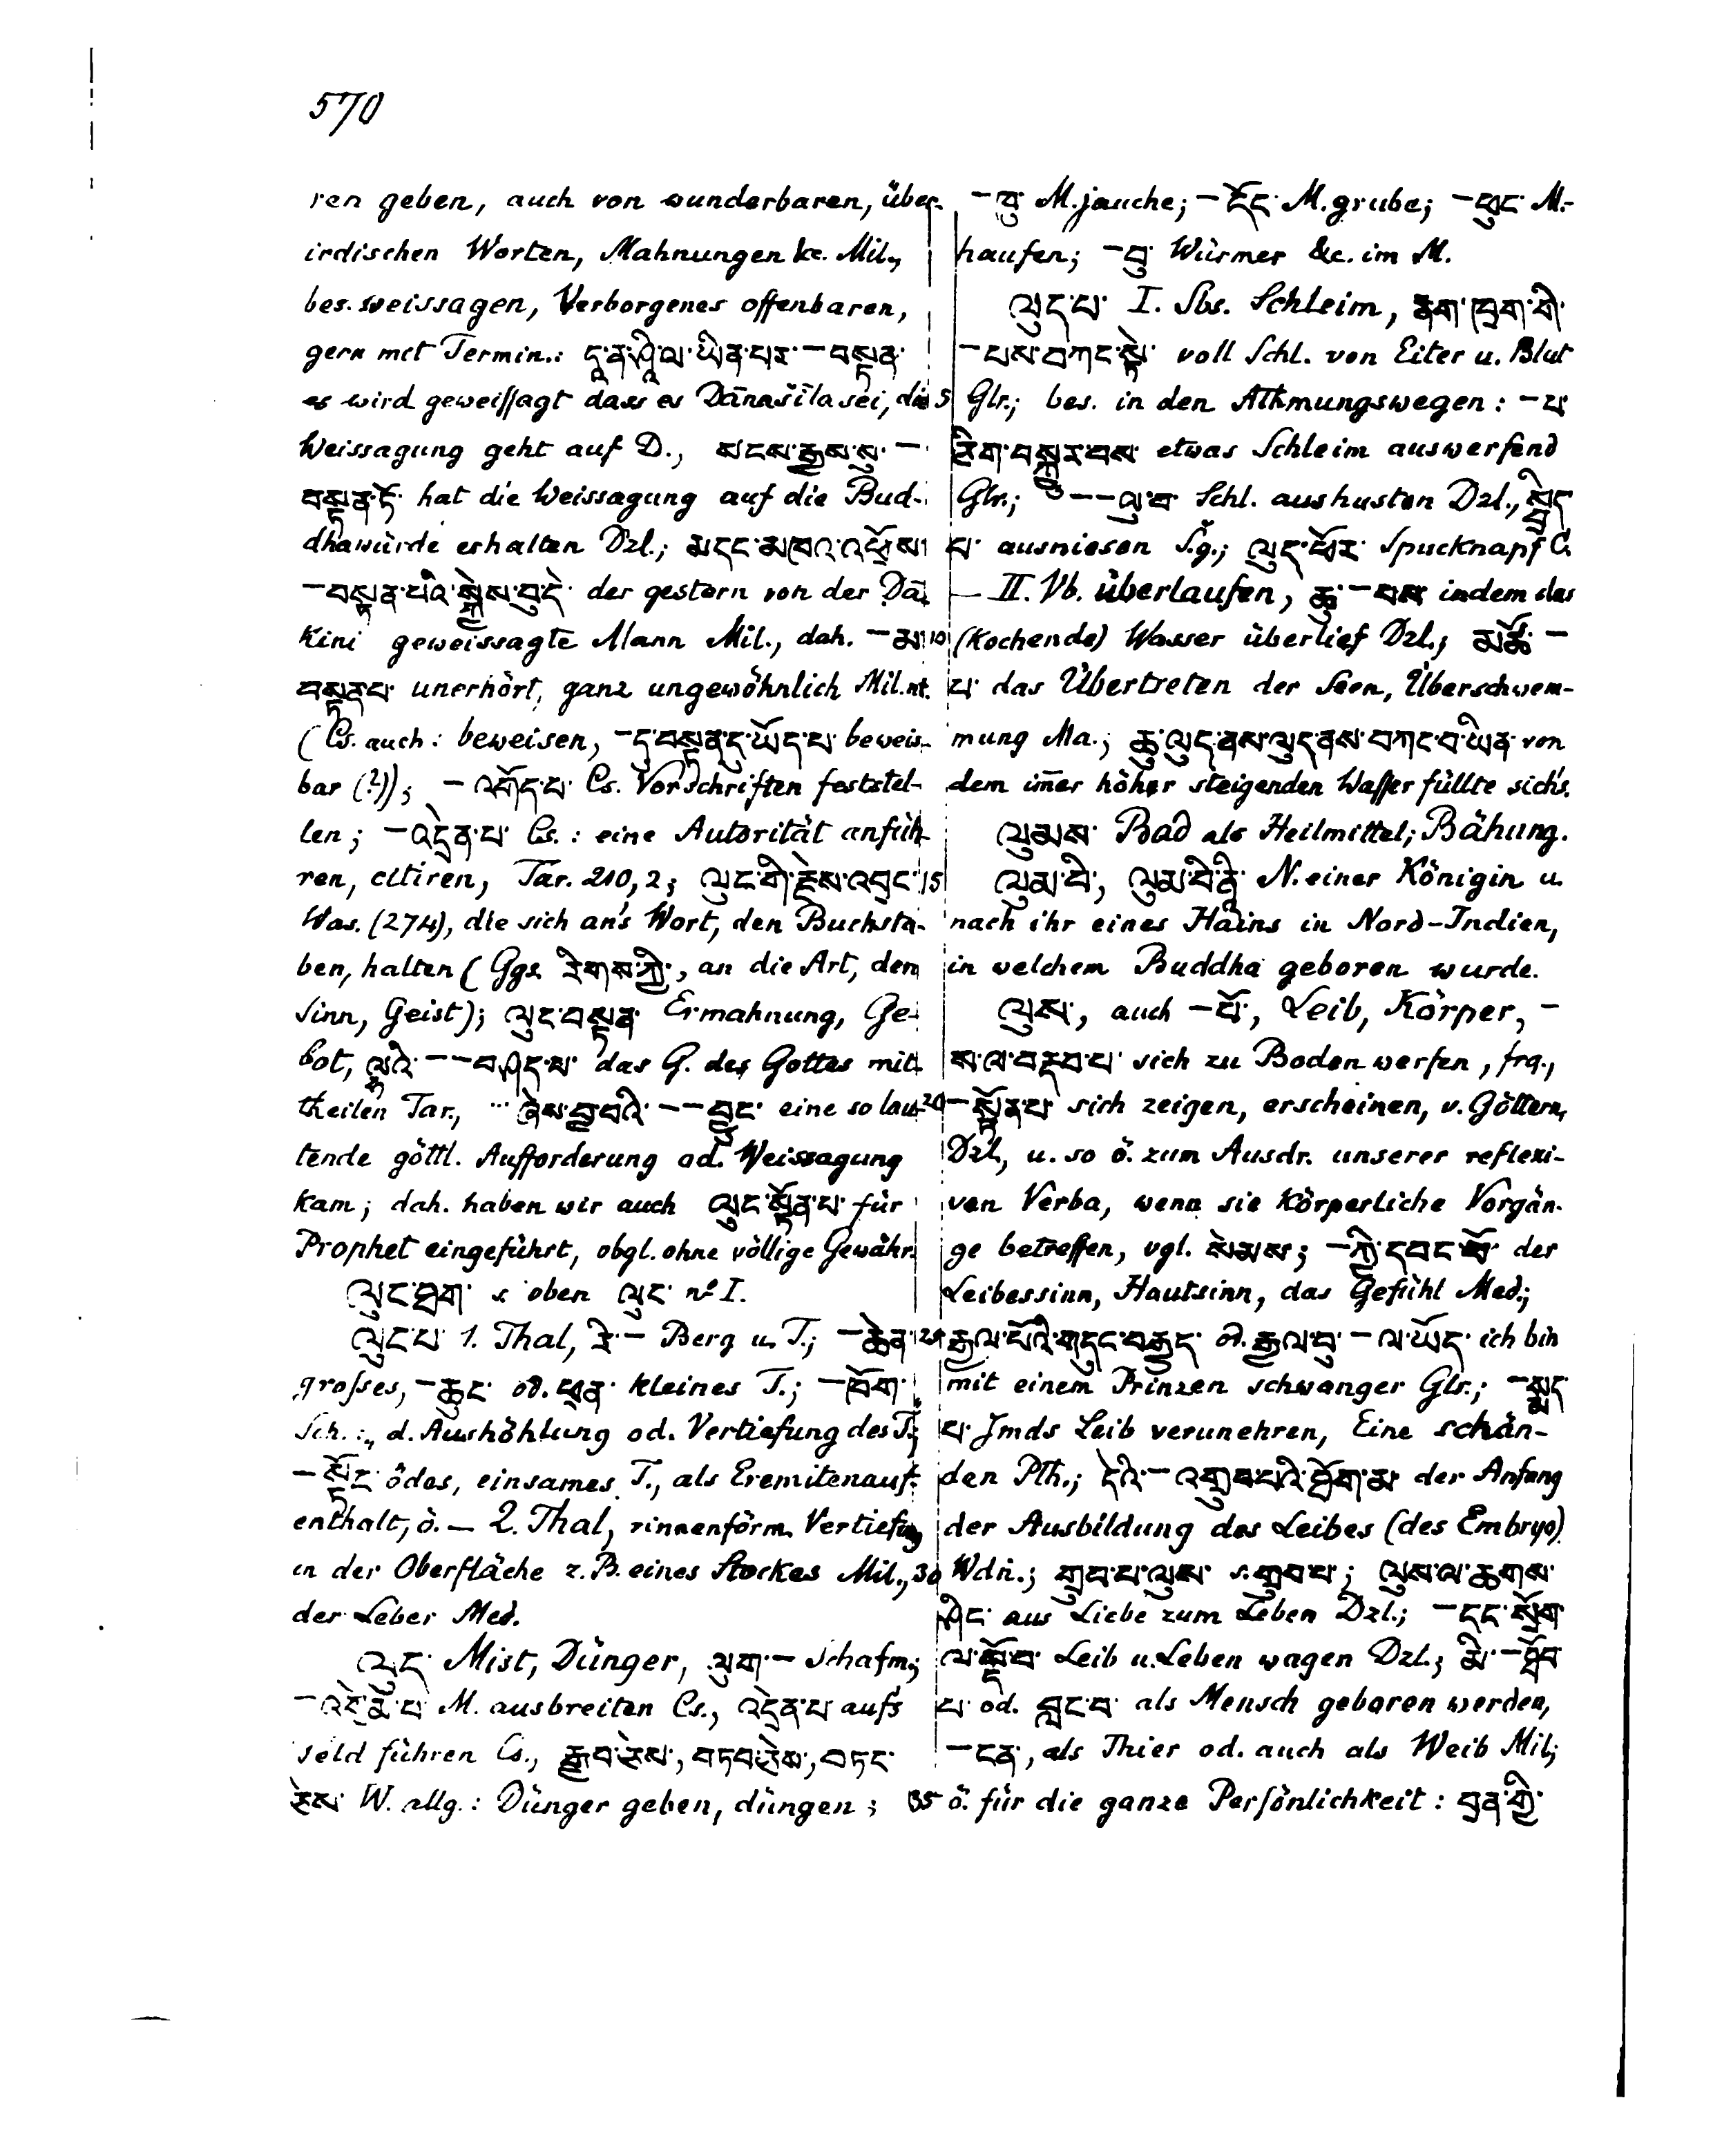 570
ren geben, auch von wunderbaren, über-
irdischen Worten, Mahnungen &c. Mil.,
bes. weissagen, Verborgenes offenbaren,
gern mit Termin.: དཱ་ན་ཤཱི་ལ་ཡིན་པར་ — བསྟན་
es wird geweissagt dass es Dānaśīla sei, die
Weissagung geht auf D., སངས་རྒྱས་སུ་ —
བསྟན་ཏོ་ hat die Weissagung auf die Bud-
dhawürde erhalten Dzl.; མདང་མཁའ་འགྲོས་
— བསྟན་པའི་སྐྱེས་བུ་དེ་ der gestern von der Ḍā-
kini geweissagte Mann Mil., dah. — མ་
བསྟན་པ་ unerhört, ganz ungewöhnlich Mil. nt.
(Cs. auch: beweisen, — དུ་བསྟན་དུ་ཡོད་པ་ beweis-
bar (?)); — འགོད་པ་ Cs. Vorschriften feststel-
len; — འདྲེན་པ་ Cs.: eine Autorität anfüh-
ren, citiren, Tar. 210,2; ལུང་གི་རྗེས་འབྲང་
Was. (274), die sich an's Wort, den Buchsta-
ben, halten (Ggs. རིགས་ཀྱི་, an die Art, den
Sinn, Geist); ལུང་བསྟན་ Ermahnung, Ge-
bot, ལྷའི་ — — བཤད་པ་ das G. des Gottes mit-
theilen Tar., ... ཞེས་བྱ་བའི་ — — བྱུང་ eine so lau-
tende göttl. Aufforderung od. Weissagung
kam; dah. haben wir auch ལུང་སྟོན་པ་ für
Prophet eingeführt, obgl. ohne völlige Gewähr.
ལུང་ཐག་ s. oben ལུང་ no I.
ལུང་པ་ 1. Thal, རི་ — Berg u. T.; — ཆེན་
grosses, — ཆུང་ od. ཕྲན་ kleines T.; — ཁོག་
Sch.: d. Aushöhlung od. Vertiefung des T.;
— སྟོང་ ödes, einsames T., als Eremitenauf-
enthalt, ö. — 2. Thal, rinnenförm. Vertiefung
in der Oberfläche z. B. eines Stockes Mil.,
der Leber Med.
ལུད་ Mist, Dünger, ལུག་ — Schafm.;
— འདེ་ M. ausbreiten Cs., འདྲེན་པ་ aufs
Feld führen Cs., རྒྱབ་ཅེས་, བཏབ་ཅེས་, བཏང་
ཅེས་ W. allg.: Dünger geben, düngen;
— ཁུ་ M.jauche; — དོང་ M.grube; — ཕུང་ M.-
haufen; — བུ་ Würmer &c. im M.
ལུད་པ་ I. Sbs. Schleim, རྣག་ཁྲག་གི་
— པས་བཀང་སྟེ་ voll Schl. von Eiter u. Blut
5 Glr.; bes. in den Athmungswegen: — པ་
ཅིག་བསྐྱུར་བས་ etwas Schleim auswerfend
Glr.; — — ལུ་བ་ Schl. aushusten Dzl., སྦྲིད་
པ་ ausniesen S.g.; ལུད་ཕོར་ Spucknapf C.
— II. Vb. überlaufen, ཆུ་ — པས་ indem das
10 (kochende) Wasser überlief Dzl.; མཚོ་ —
པ་ das Übertreten der Seen, Überschwem-
mung Ma.; ཆུ་ལུད་ནས་ལུད་ནས་བཀང་བ་ཡིན་ von
dem im̄er höher steigenden Wasser füllte sich's.
ལུམས་ Bad als Heilmittel; Bähung.
15 ལུམ་བི་, ལུམ་བི་ནཱི་ N. einer Königin u.
nach ihr eines Hains in Nord-Indien,
in welchem Buddha geboren wurde.
ལུས་, auch — པོ་, Leib, Körper, —
ས་ལ་བརྡབ་པ་ sich zu Boden werfen, frq.,
20 — སྟོན་པ་ sich zeigen, erscheinen, v. Göttern,
Dzl., u. so ö. zum Ausdr. unserer reflexi-
ven Verba, wenn sie körperliche Vorgän-
ge betreffen, vgl. སེམས་; — ཀྱི་དབང་པོ་ der
Leibessinn, Hautsinn, das Gefühl Med.;
25 རྒྱལ་པོའི་གདུང་བརྒྱུད་ od. རྒྱལ་བུ་ — ལ་ཡོད་ ich bin
mit einem Prinzen schwanger Glr.; — སྨད་
པ་ Jmds Leib verunehren, Eine schän-
den Pth.; དེའི་ — འགྲུབ་པའི་ཐོག་མ་ der Anfang
der Ausbildung des Leibes (des Embryo)
30 Wdn.; གྲུབ་པ་ལུས་ s. གྲུབ་པ་; ལུས་ལ་ཆགས་
ཤིང་ aus Liebe zum Leben Dzl.; — དང་སྲོག་
ལ་སྡོ་བ་ Leib u. Leben wagen Dzl.; མི་ — ཐོབ་
པ་ od. བླང་བ་ als Mensch geboren werden,
— ངན་, als Thier od. auch als Weib Mil.;
35 ö. für die ganze Persönlichkeit: བྲན་གྱི་